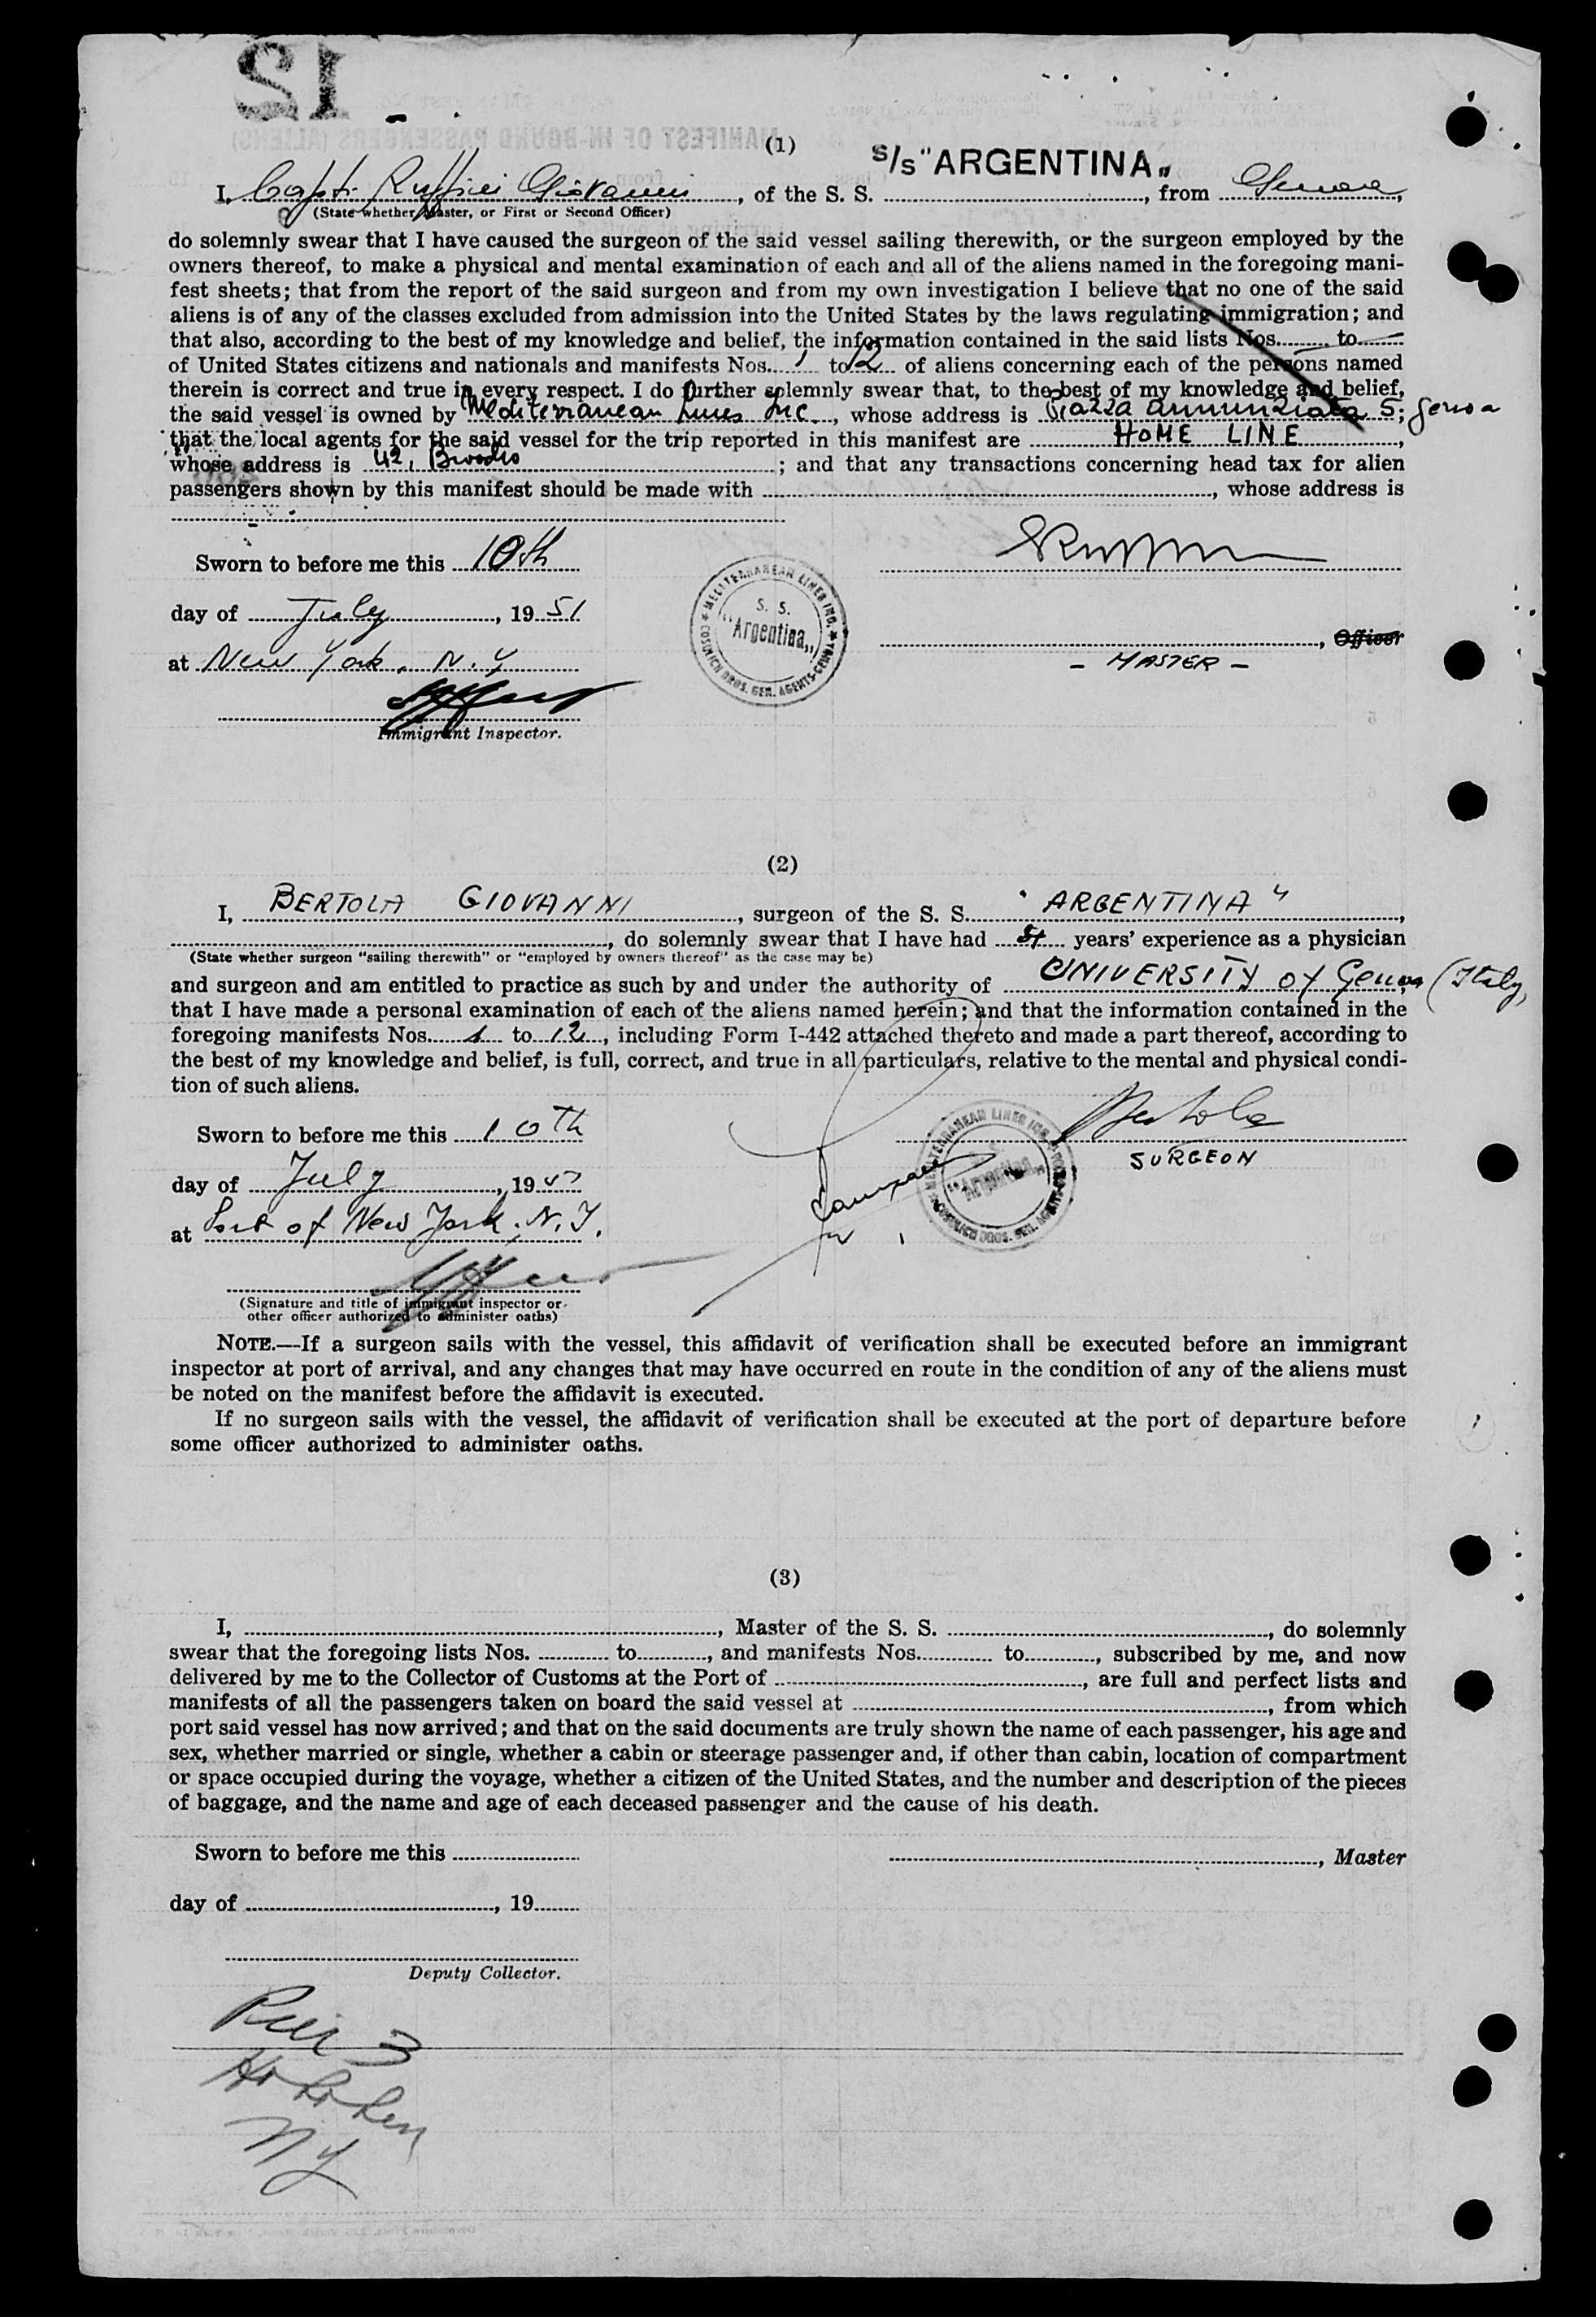 12
(1)
S/S "ARGENTINA"
I, Capt. Ruffini Giovanni, of the S. S. , from Genoa,
(State whether Master, or First or Second Officer)
do solemnly swear that I have caused the surgeon of the said vessel sailing therewith, or the surgeon employed by the
owners thereof, to make a physical and mental examination of each and all of the aliens named in the foregoing mani-
fest sheets; that from the report of the said surgeon and from my own investigation I believe that no one of the said
aliens is of any of the classes excluded from admission into the United States by the laws regulating immigration; and
that also, according to the best of my knowledge and belief, the information contained in the said lists Nos. — to —
of United States citizens and nationals and manifests Nos. 1 to 12 of aliens concerning each of the persons named
therein is correct and true in every respect. I do further solemnly swear that, to the best of my knowledge and belief,
the said vessel is owned by Mediterranean Lines Inc., whose address is Piazza Annunziata 5; Genoa
that the local agents for the said vessel for the trip reported in this manifest are HOME LINE,
whose address is 42, ; and that any transactions concerning head tax for alien
passengers shown by this manifest should be made with , whose address is
Sworn to before me this 10th
day of July, 1951
at New York, N.Y
Immigrant Inspector.
MEDITERRANEAN LINES INC. COSULICH BROS. GEN. AGENTS-GENOA
S. S.
"Argentina"
, Officer
- MASTER -
(2)
I, BERTOLA GIOVANNI, surgeon of the S. S. "ARGENTINA",
, do solemnly swear that I have had years' experience as a physician
(State whether surgeon "sailing therewith" or "employed by owners thereof" as the case may be)
and surgeon and am entitled to practice as such by and under the authority of UNIVERSITY of Genoa (Italy)
that I have made a personal examination of each of the aliens named herein; and that the information contained in the
foregoing manifests Nos. 1 to 12, including Form I-442 attached thereto and made a part thereof, according to
the best of my knowledge and belief, is full, correct, and true in all particulars, relative to the mental and physical condi-
tion of such aliens.
Sworn to before me this 10th
day of July, 19
at Port of New York, N.Y.
(Signature and title of immigrant inspector or
other officer authorized to administer oaths)
Bertola
SURGEON
MEDITERRANEAN LINES INC. COSULICH BROS. GEN. AGENTS-GENOA
"Argentina"
NOTE.—If a surgeon sails with the vessel, this affidavit of verification shall be executed before an immigrant
inspector at port of arrival, and any changes that may have occurred en route in the condition of any of the aliens must
be noted on the manifest before the affidavit is executed.
If no surgeon sails with the vessel, the affidavit of verification shall be executed at the port of departure before
some officer authorized to administer oaths.
(3)
I, , Master of the S. S. , do solemnly
swear that the foregoing lists Nos. to , and manifests Nos. to , subscribed by me, and now
delivered by me to the Collector of Customs at the Port of , are full and perfect lists and
manifests of all the passengers taken on board the said vessel at , from which
port said vessel has now arrived; and that on the said documents are truly shown the name of each passenger, his age and
sex, whether married or single, whether a cabin or steerage passenger and, if other than cabin, location of compartment
or space occupied during the voyage, whether a citizen of the United States, and the number and description of the pieces
of baggage, and the name and age of each deceased passenger and the cause of his death.
Sworn to before me this
, Master
day of , 19
Deputy Collector.
Pier 3
Hoboken
NY